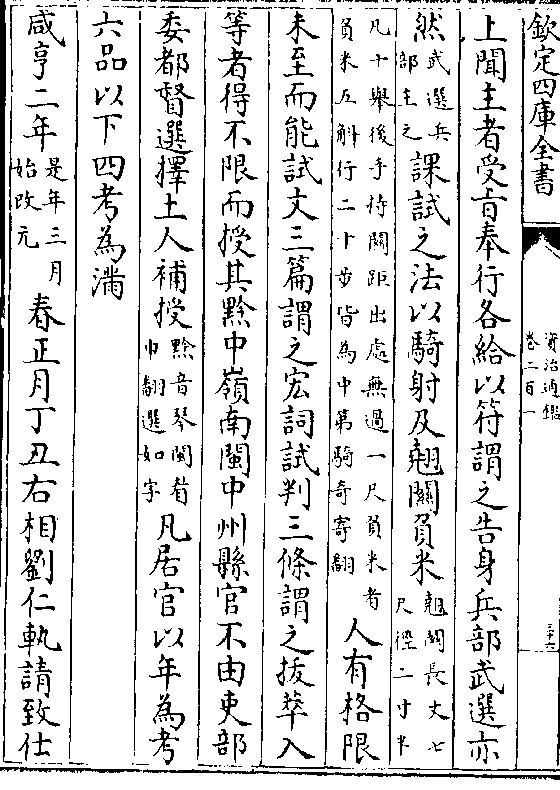 欽定四庫全書
資治通鑑
卷二百一
三十六
上聞主者受旨奉行各給以符謂之告身兵部武選亦
然武選兵部主之課試之法以騎射及翹關負米翹關長丈七尺徑二寸半
凡十舉後手持關距出處無過一尺負米者負米五斛行二十步皆為中第騎奇寄翻人有格限
未至而能試文三篇謂之宏詞試判三條謂之拔萃入
等者得不限而授其黔中嶺南閩中州縣官不由吏部
委都督選擇土人補授黔音琴閩眉巾翻選如字凡居官以年為考
六品以下四考為滿
咸亨二年是年三月始改元春正月丁丑右相劉仁軌請致仕